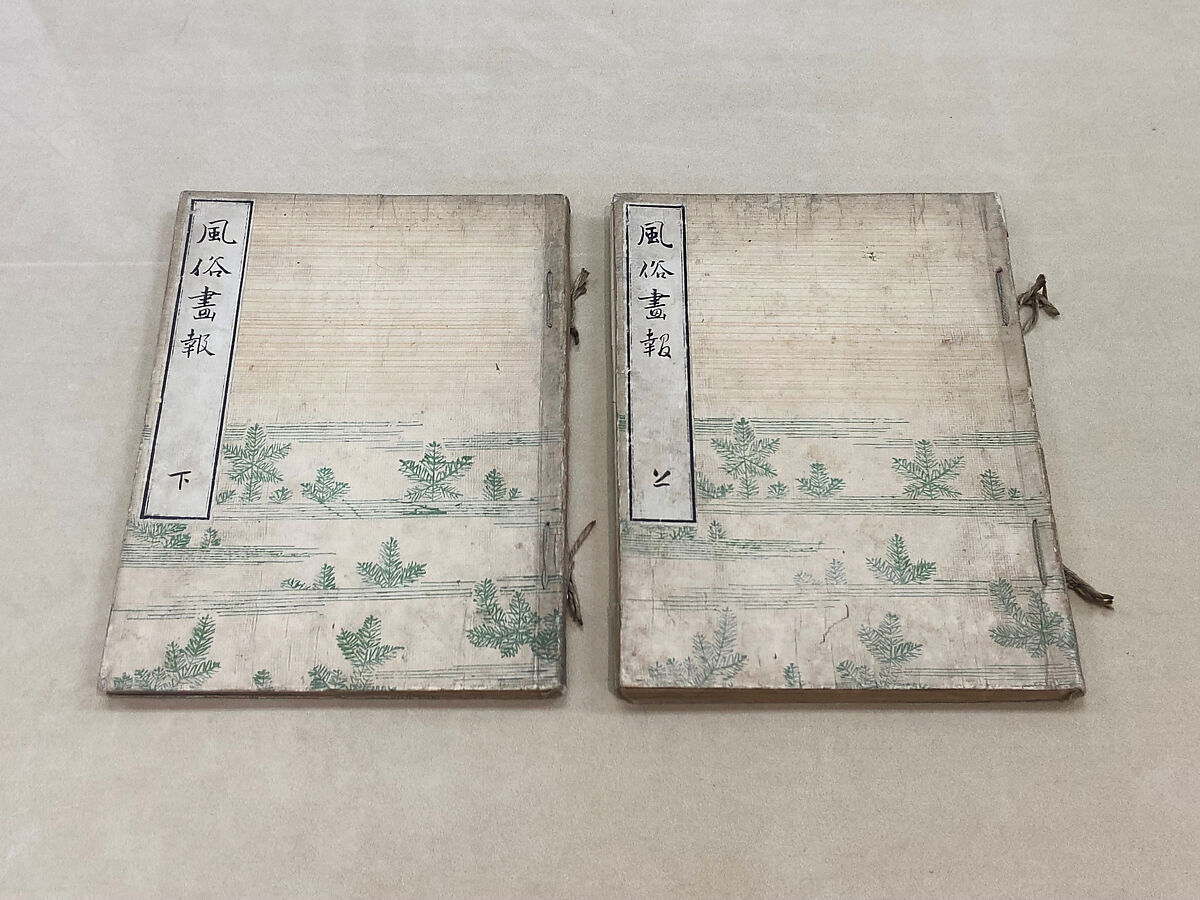 風俗畫報
上
風俗畫報
下